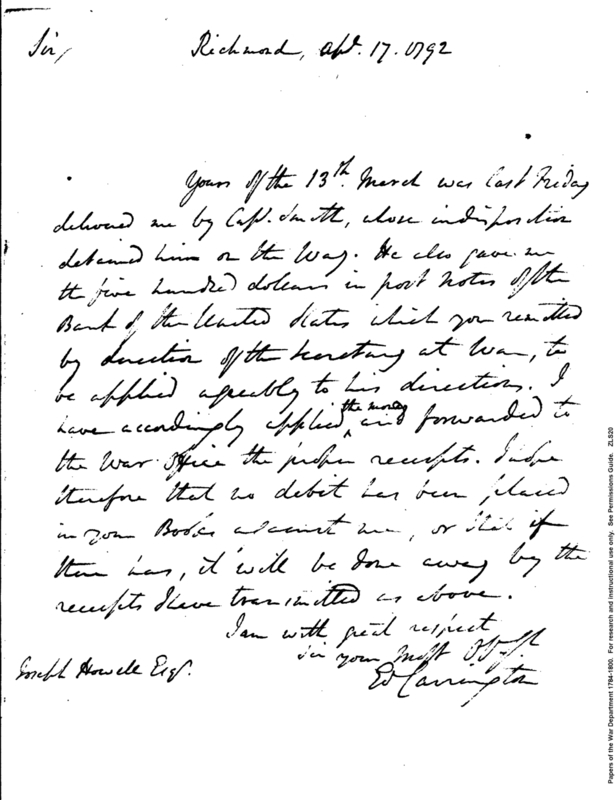 Sir,
Richmond, Apl. 17. 1792
Yours of the 13th. March was last Friday
delivered me by Capt. Smith, whose indisposition
detained him on the Way. He also gave me
the five hundred dollars in post Notes of the
Bank of the United States which you remitted
by direction of the Secretary at War, to
be applied agreeably to his directions. I
have accordingly applied the money and forwarded to
the War Office the proper receipts. I hope
therefore that no debit has been placed
in your Books against me, or that if
there has, it will be done away by the
receipts I have transmitted as above.
I am with great respect
Sir your Most Ob. St.
Ed Carrington
Joseph Howell Esqr.
Papers of the War Department 1784-1800. For research and instructional use only. See Permissions Guide. ZLS20